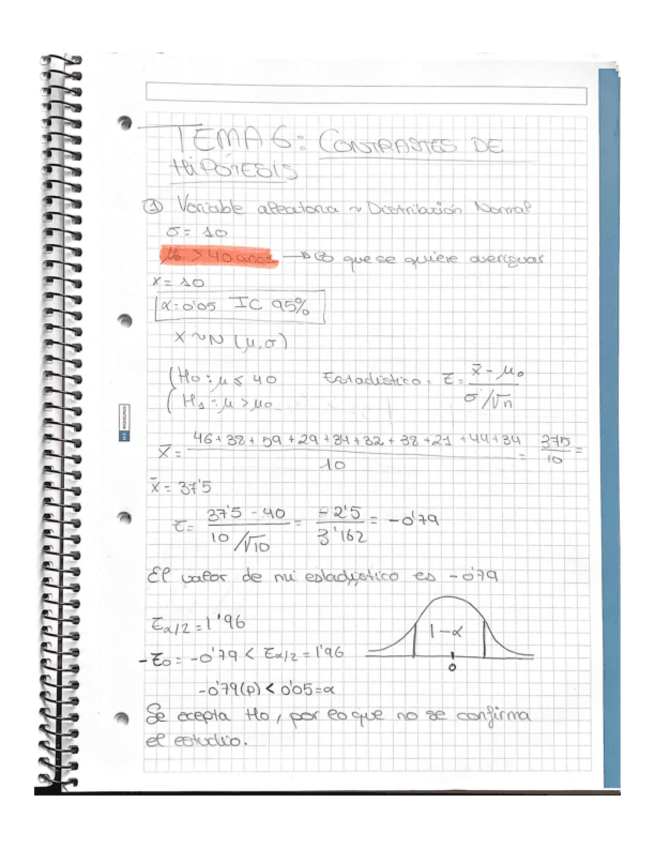 TEMA 6: CONTRASTES DE
HIPÓTESIS
① Variable aleatoria ~ Distribución Normal
σ = 10
μ₀ > 40 años → Lo que se quiere averiguar
x = 10
α = 0'05 IC 95%
X ~ N (μ, σ)
{ H₀ : μ ≤ 40 Estadístico: z = (x̄ - μ₀) / (σ/√n)
{ H₁ : μ > μ₀
x̄ = (46 + 38 + 59 + 29 + 34 + 32 + 38 + 21 + 44 + 34) / 10 = 375 / 10 =
x̄ = 37'5
z = (37'5 - 40) / (10/√10) = -2'5 / 3'162 = -0'79
El valor de mi estadístico es -0'79
z α/2 = 1'96
1-α
0
-z₀ = -0'79 < z α/2 = 1'96
-0'79(p) < 0'05 = α
Se acepta H₀, por lo que no se confirma
el estudio.